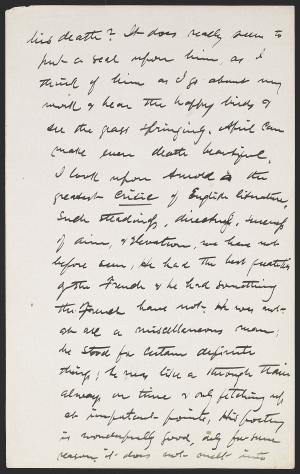 his death? It does really seem to
put a seal upon him, as I
think of him as I go about my
work & hear the happy birds &
see the grass springing. April can
make even death beautiful.
I look upon Arnold as the
greatest critic of English literature,
Such steadiness, directness, sureness
of aim, & elevation, we have not
before seen; He had the best qualities
of the French & he had something
the French have not. He was not
at all a miscellaneous man;
he stood for certain definite
things; he was like a through train
always on time & only fetching up
at important points, His poetry
is wonderfully good, only for some
reason it does not melt into